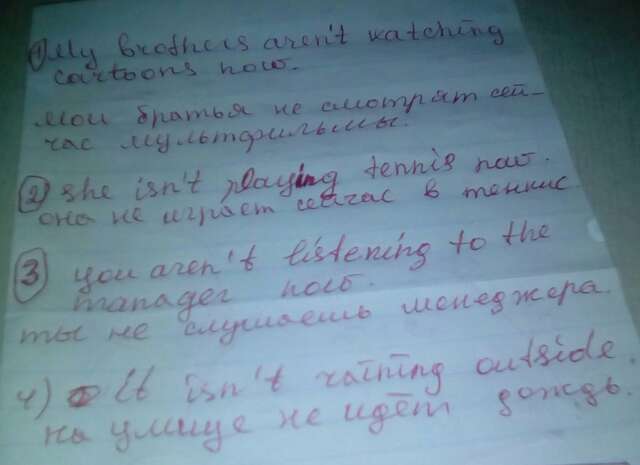 1) My brothers aren't watching
cartoons now.
мои братья не смотрят сей-
час мультфильмы.
2) she isn't playing tennis now.
она не играет сейчас в теннис
3 you aren't listening to the
manager now.
ты не слушаешь менеджера.
4) It isn't raining outside.
на улице не идёт дождь.